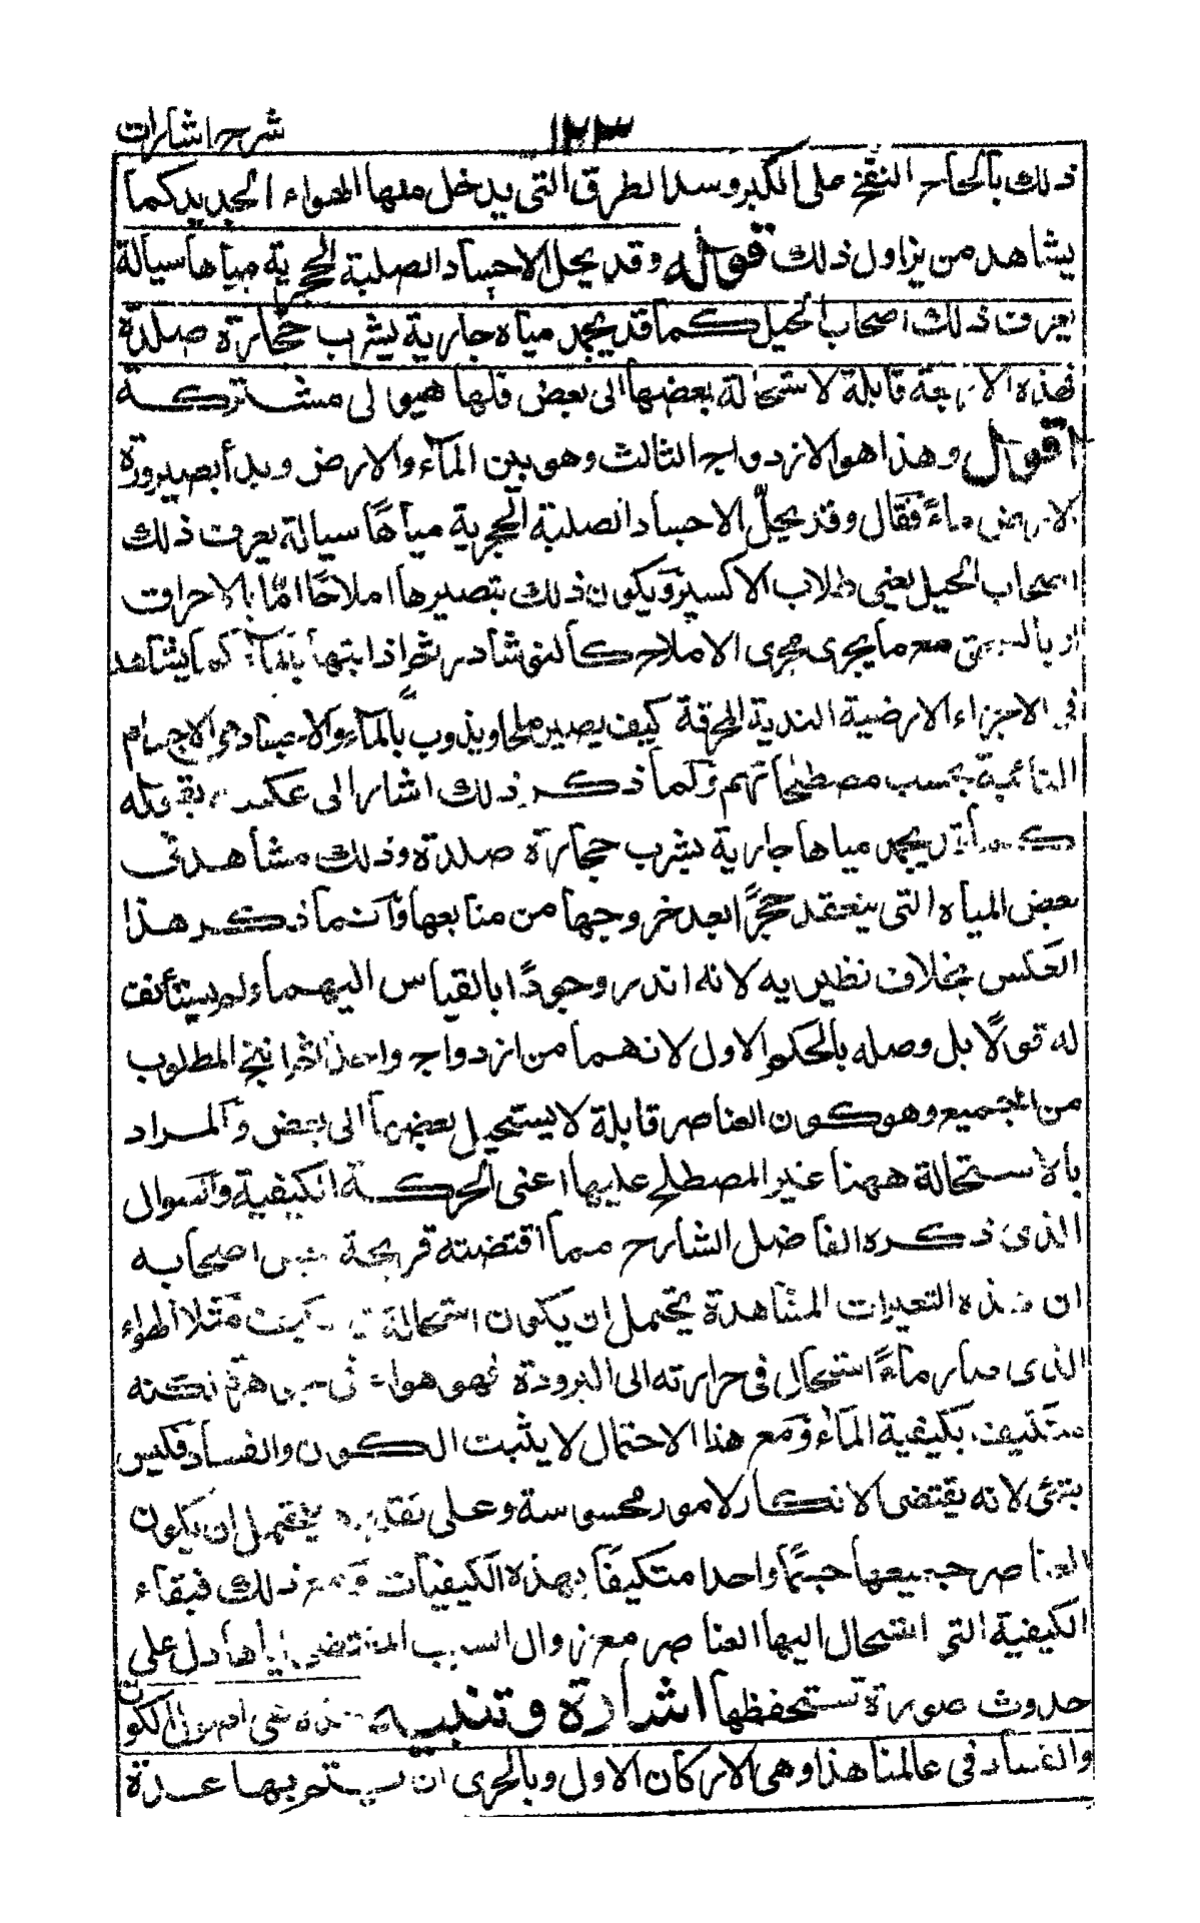 شرح اشارات ١٢٣
ذلك بالحاح النفخ على الكير وسد الطرق التى يدخل منها الهواء الجديد كما
يشاهد من يزاول ذلك قوله وقد يحل الاجساد الصلبة الحجرية مياها سيالة
يعرف ذلك اصحاب الحيل كما قد يجمد مياه جارية يشرب حجارة صلدة
فهذه الاربعة قابلة لاستحالة بعضها الى بعض فلها هيولى مشتركة
اقول وهذا هو الازدواج الثالث وهو بين الماء والارض وبدأ بصيرورة
الارض ماءً فقال وقد يحلّ الاجساد الصلبة الحجرية مياهًا سيالة يعرف ذلك
اصحاب الحيل يعنى طلاب الاكسير ويكون ذلك بتصييرها املاحًا امّا بالاحراق
او بالسحق مع ما يجرى مجرى الاملاح كالنوشادر ثم اذابتها بالماء كما يشاهد
فى الاجزاء الارضية الندية المحرقة كيف يصير ملحا ويذوب بالماء والاجساد هى الاجسام
الذائبة بحسب مصطلحاتهم ولما ذكر ذلك اشار الى عكسه بقوله
كما قد يجمد مياها جارية يشرب حجارة صلدة وذلك مشاهد فى
بعض المياه التى ينعقد حجرًا بعد خروجها من منابعها وانما ذكر هذا
العكس بخلاف نظيريه لانه اندر وجودًا بالقياس اليهما ولم يستأنف
له قولًا بل وصله بالحكم الاول لانهما من ازدواج واحد ثم انتج المطلوب
من الجميع وهو كون العناصر قابلة لا يستحيل بعضها الى بعض والمراد
بالاستحالة ههنا غير المصطلح عليها اعنى الحركة الكيفية والسوال
الذى ذكره الفاضل الشارح مما اقتضته قريحة بعض اصحابه
ان هذه التغيرات المشاهدة يحتمل ان يكون استحالة فى الكيف مثلا الهواء
الذى صار ماءً استحال فى حرارته الى البرودة فهو هواء فى جوهره لكنه
متكيف بكيفية الماء ومع هذا الاحتمال لا يثبت الكون والفساد فليس
بشئ لانه يقتضى الانكار لامور محسوسة وعلى تقديره يحتمل ان يكون
العناصر جميعها جسمًا واحدا متكيفًا بهذه الكيفيات ومع ذلك فبقاء
الكيفية التى استحال اليها العناصر مع زوال السبب المقتضى اياها دل على
حدوث صورة تستحفظها اشارة وتنبيه هذه هى اصول الكون
والفساد فى عالمنا هذا وهى الاركان الاول وبالحرى ان يستحر بها عدة